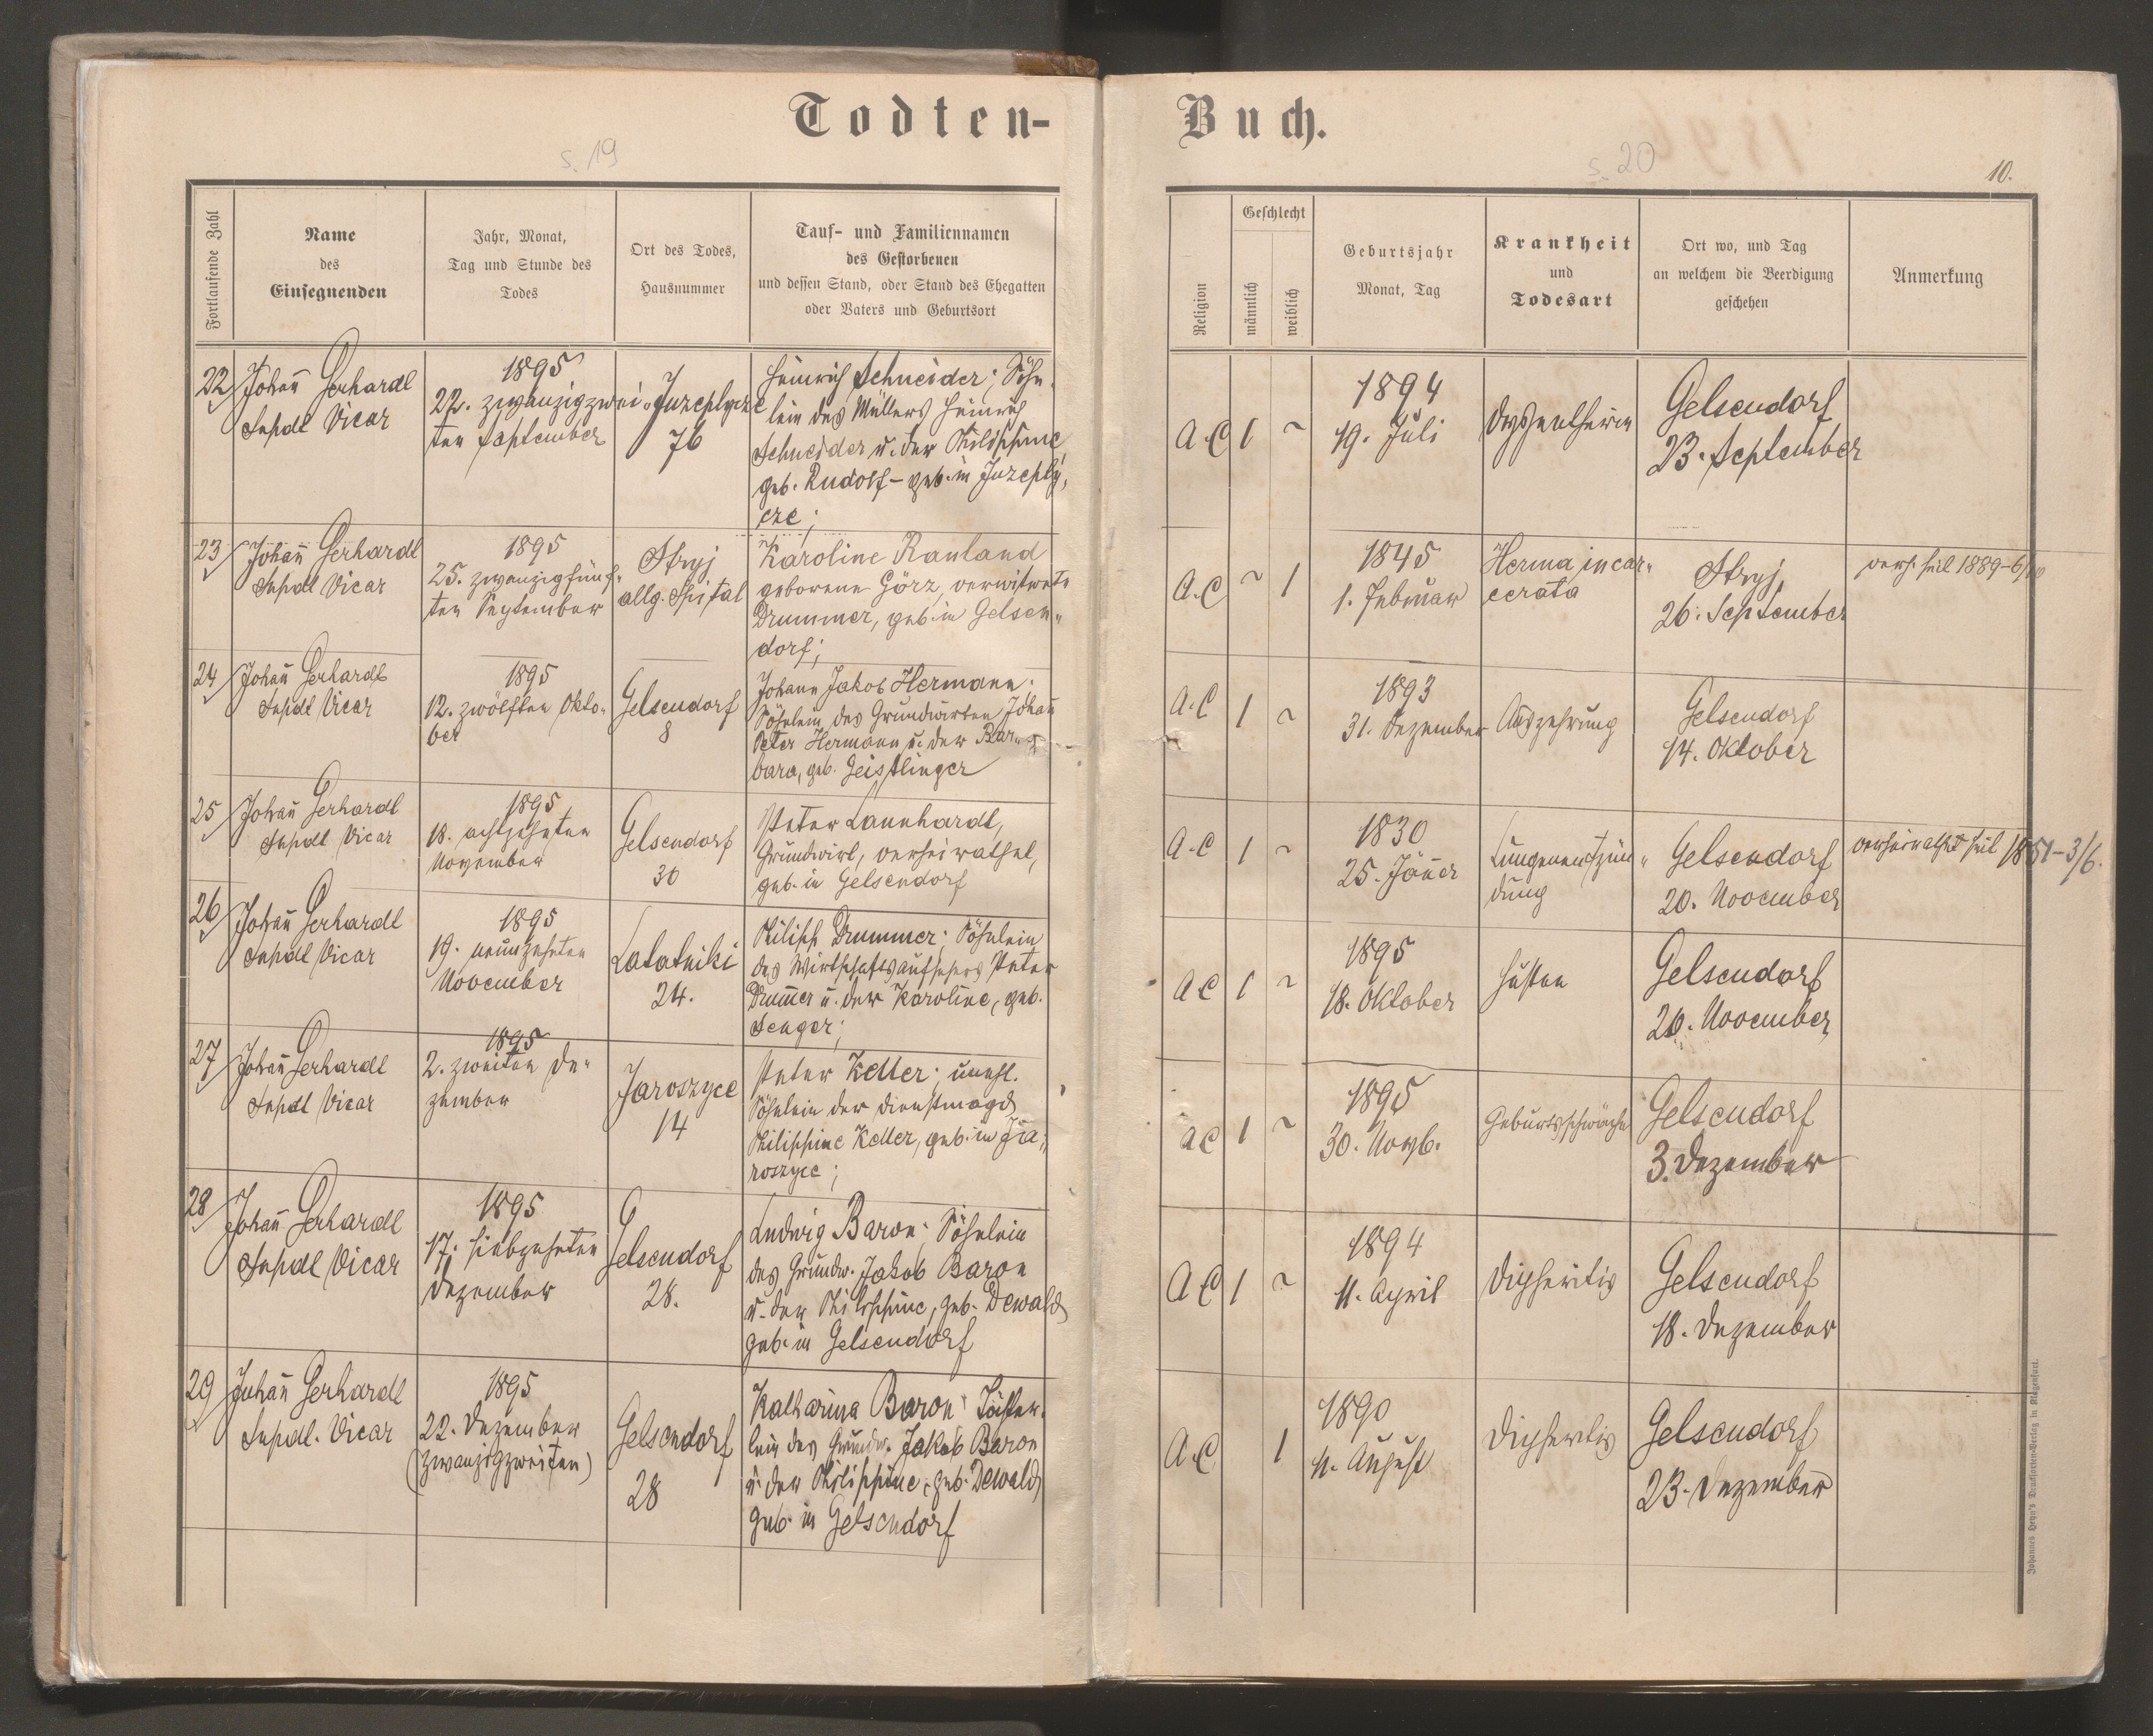 Todten-
Buch.
s. 19
s. 20
10.
Fortlaufende Zahl
Name
des
Einsegnenden
Jahr, Monat,
Tag und Stunde des
Todes
Ort des Todes,
Hausnummer
Tauf- und Familiennamen
des Gestorbenen
und dessen Stand, oder Stand des Ehegatten
oder Vaters und Geburtsort
Religion
Geschlecht
männlich
weiblich
Geburtsjahr
Monat, Tag
Krankheit
und
Todesart
Ort wo, und Tag
an welchem die Beerdigung
geschehen
Anmerkung
22
Johañ Gerhardt
Supdl Vicar
1895
22. zwanzigzwei-
ten September
Juzeptycze
76
Heinrich Schneider; Söhn-
lein des Müllers Heinrich
Schneider u. der Philippine
geb. Rudolf – geb. in Juzepty,
cze;
A.C
1
~
1894
19. Juli
Gelsendorf
23. September
23
Johañ Gerhardt
Supdl Vicar
1895
25. zwanzigfünf-
ten September
Stryj
allg. Spital
Karoline Rauland
geborene Görz, verwitwete
Drummer, geb. in Gelsen-
dorf;
A.C
~
1
1845
1. Februar
Herma incar-
cerata
Stryj,
26. September
verh. seit 1889-6/
24
Johañ Gerhardt
Supdl Vicar
1895
12. zwölften Okto-
ber
Gelsendorf
8
Johann Jakob Hermann.
Söhnlein des Grundwirten Johañ
Peter Hermann u. der Bar-
bara, geb. Geistlinger
A.C
1
~
1893
31. Dezember
Auszehrung
Gelsendorf
14. Oktober
25
Johañ Gerhardt
Supdl Vicar
1895
18. achtzehnten
November
Gelsendorf
30
Peter Launhardt,
Grundwirt, verheirathet,
geb. in Gelsendorf
A.C
1
~
1830
25. Jäner
Lungenentzün-
dung
Gelsendorf
20. November
verheirathet seit 1851-3/6.
26
Johañ Gerhardt
Supdl Vicar
1895
19. neunzehnten
November
Latatniki
24.
Philipp Drummer; Söhnlein
des Wirthschaftsaufsehers Peter
Drum̄er u. der Karoline, geb.
Senger;
A C
1
~
1895
18. Oktober
Husten
Gelsendorf
20. November
27
Johañ Gerhardt
Supdl Vicar
1895
2. zweiten De-
zember
Jaroszyce
14
Peter Keller; unehl.
Söhnlein der Dienstmagd
Philippine Keller, geb. in Ja-
roszyce;
A C
1
~
1895
30. Novb.
Geburtsschwäche
Gelsendorf
3. Dezember
28
Johañ Gerhardt
Supdl Vicar
1895
17. siebzehnten
Dezember
Gelsendorf
28.
Ludwig Baron; Söhnlein
des Grundw. Jakob Baron
u. der Philippine, geb. Dewald
geb. in Gelsendorf
A C
1
~
1894
11. April
Diphteritis
Gelsendorf
18. Dezember
29
Johañ Gerhardt
Supdl. Vicar
1895
22. Dezember
(zwanzigzweiten)
Gelsendorf
28
Katharina Baron; Töchter-
lein des Grundw. Jakob Baron
u. der Philippine, geb. Dewald
geb. in Gelsendorf
A.C
1
1890
11. August
Diphteritis
Gelsendorf
23. Dezember
Johannes Heyn's Drucksorten-Verlag in Klagenfurt.